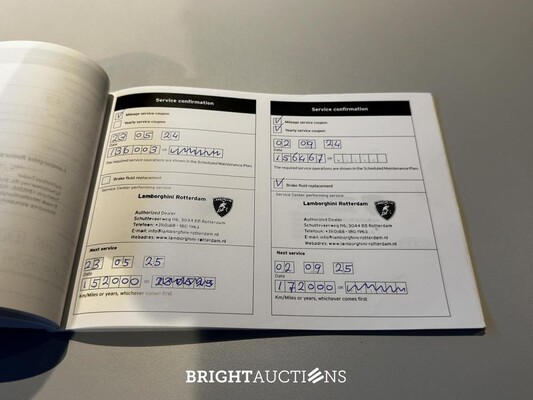 Service confirmation
Mileage service coupon
Yearly service coupon
23 05 24
Date
136003 or
The required service operations are shown in the Scheduled Maintenance Plan.
Brake fluid replacement
Service Center performing service
Lamborghini Rotterdam
Authorized Dealer
Schuttevaerweg 116, 3044 BB Rotterdam
E-mail: info@lamborghini-rotterdam.nl
Webadres: www.lamborghini-rotterdam.nl
Next service
23 05 25
Date
152000 or
Km/Miles or years, whichever comes first
Service confirmation
Mileage service coupon
Yearly service coupon
02 09 24
Date
156467 or
The required service operations are shown in the Scheduled Maintenance Plan.
Brake fluid replacement
Service Center performing service
Lamborghini Rotterdam
Authorized Dealer
Schuttevaerweg 116, 3044 BB Rotterdam
E-mail: info@lamborghini-rotterdam.nl
Webadres: www.lamborghini-rotterdam.nl
Next service
02 09 25
Date
172000 or
Km/Miles or years, whichever comes first
BRIGHTAUCTIONS